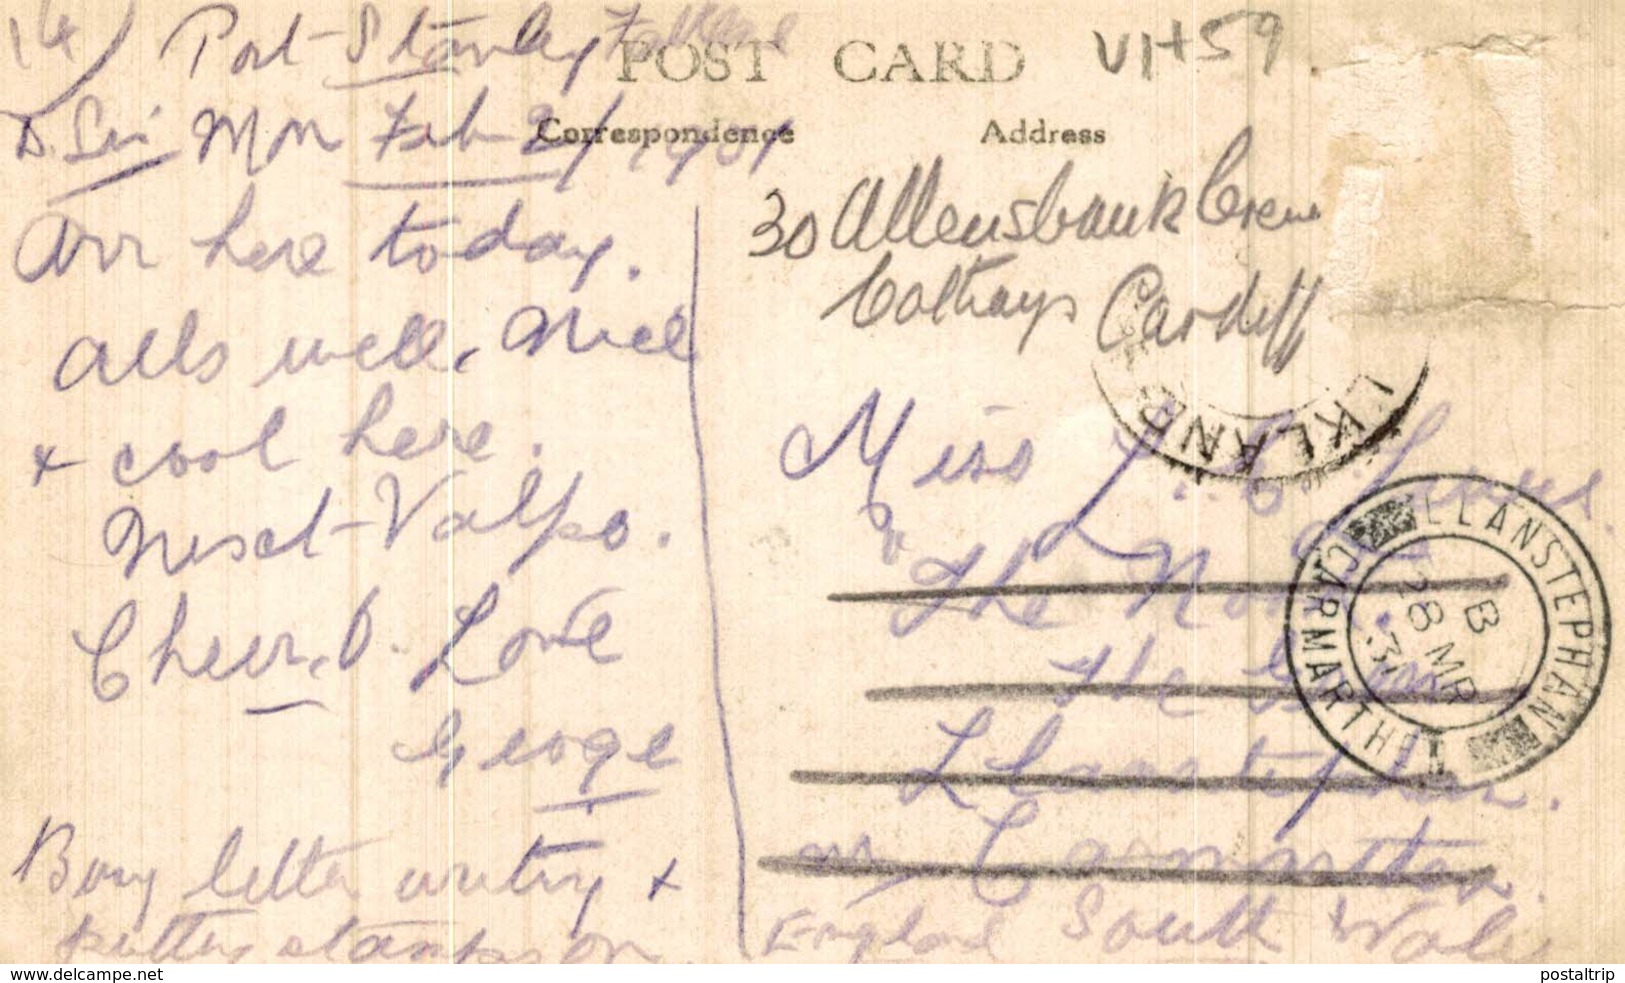 14/ Port Stanley
POST CARD
Mon Feb 1931
Correspondence
Address
Arr here today.
alls well, Nice
+ cool here.
Next - Valpo.
Cheer O. Love
George
Busy letter writing +
putting stamps on
30 Allensbank Cres
Cathays Cardiff
Miss L. E.
"The
The
Llanstephan.
nr Carmarthen.
England South Wales
LKLAND
LLANSTEPHAN
B
28 MR
31
CARMARTHEN
www.delcampe.net
postaltrip